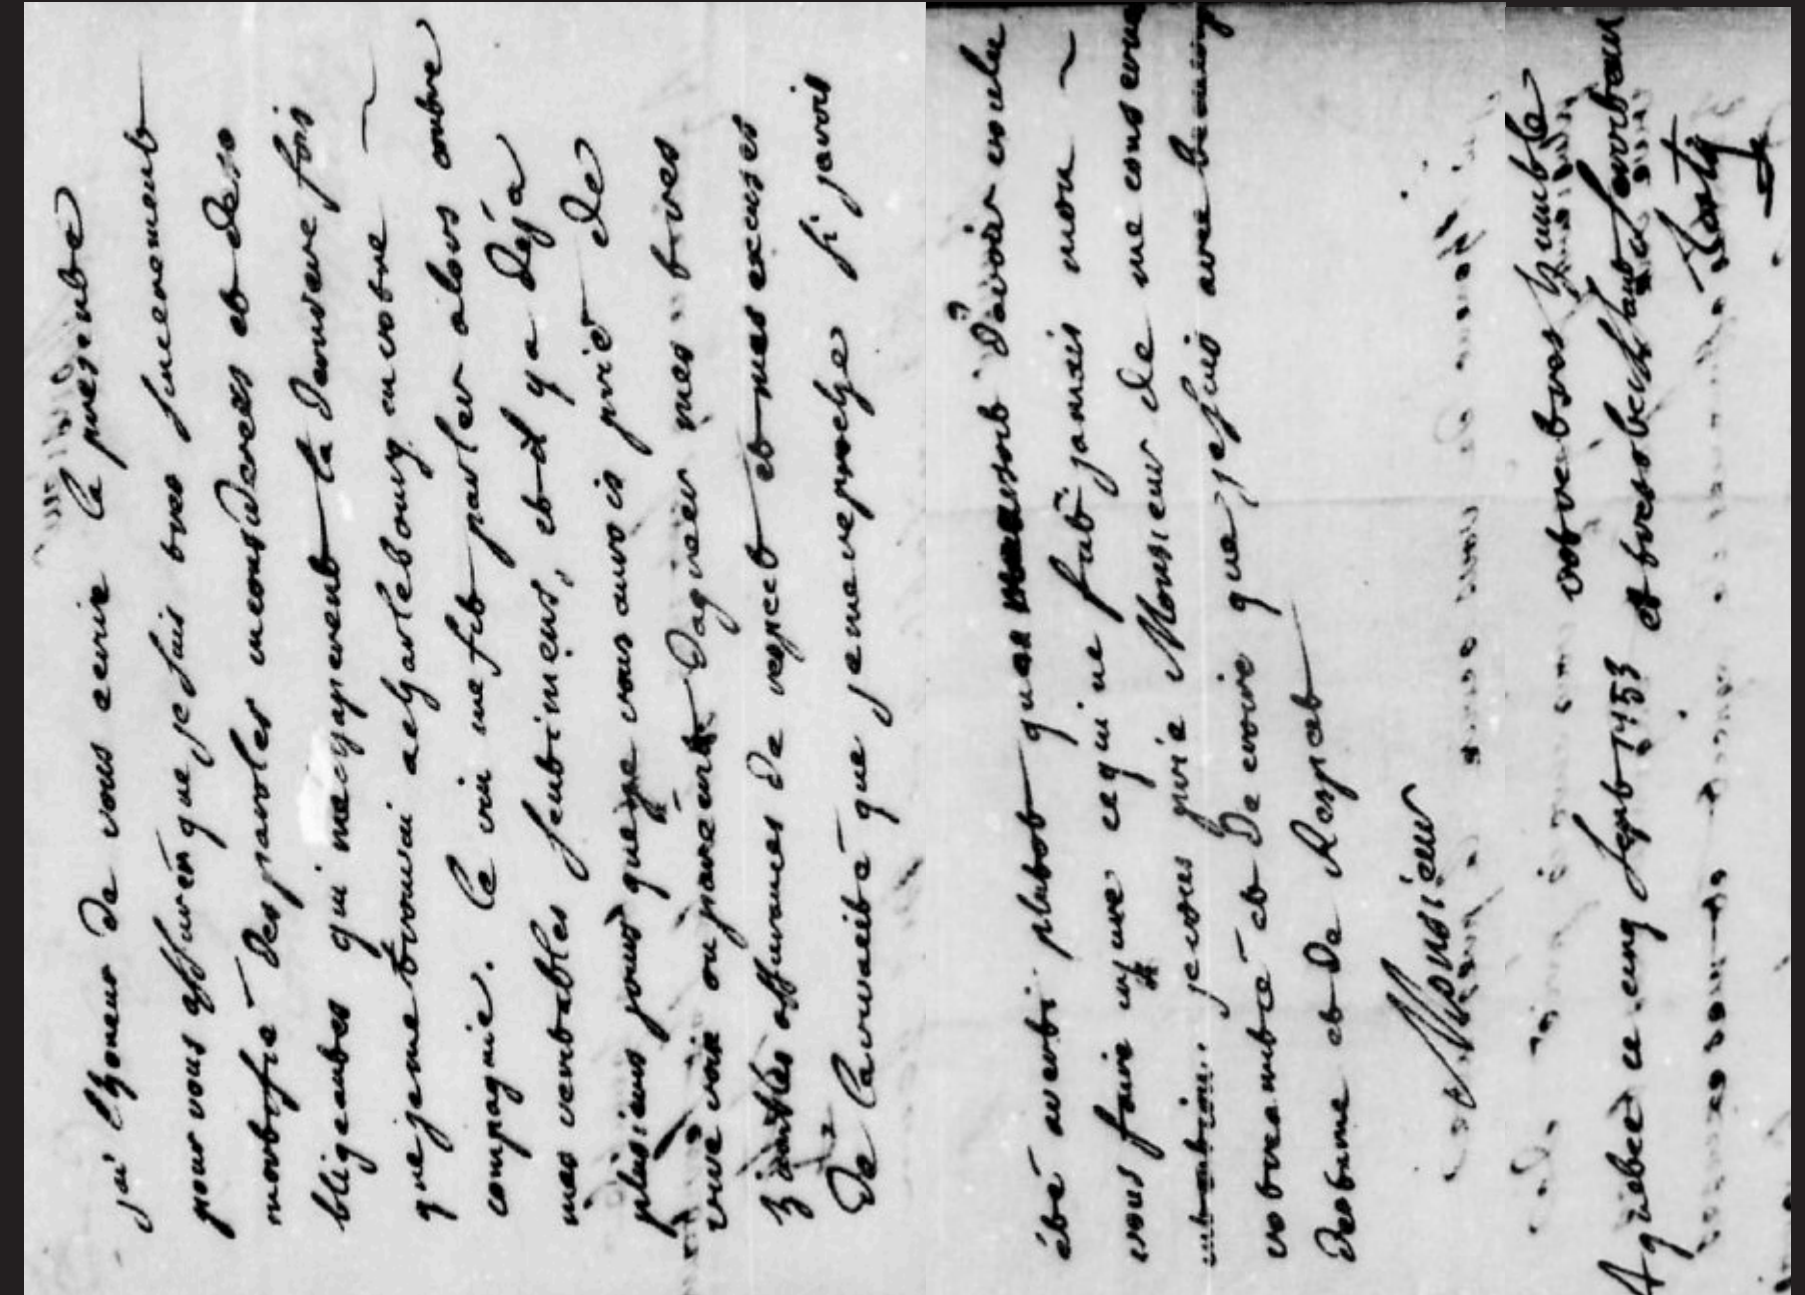 jai l'honeur de vous ecrire la presente
pour vous assurer que je suis tres sincerement
mortifié des paroles inconsiderees et deso
bligeantes qui mechaperent la derniere fois
que je me trouvai acharlebourg en votre
compagnie. le vin me fit parler alors contre
mes veritables sentimens, et il y a déja
plusieurs jours que je vous aurois prié de
vive voix ou par ecrit d'agréer mes tres
humbles assurances de respect et mes excuses
de l'arrivaité que je me reproche si javois
été averti plutot que d'avoir voulu
vous faire injure ce qui ne fut jamais mon
intention. je vous prie Monsieur de me conserver
votre amitié et de croire que je suis avec beaucoup
destime et de Respect
Monsieur
votre tres humble
A quebec ce cinq sept 1753 et tres obeissant serviteur